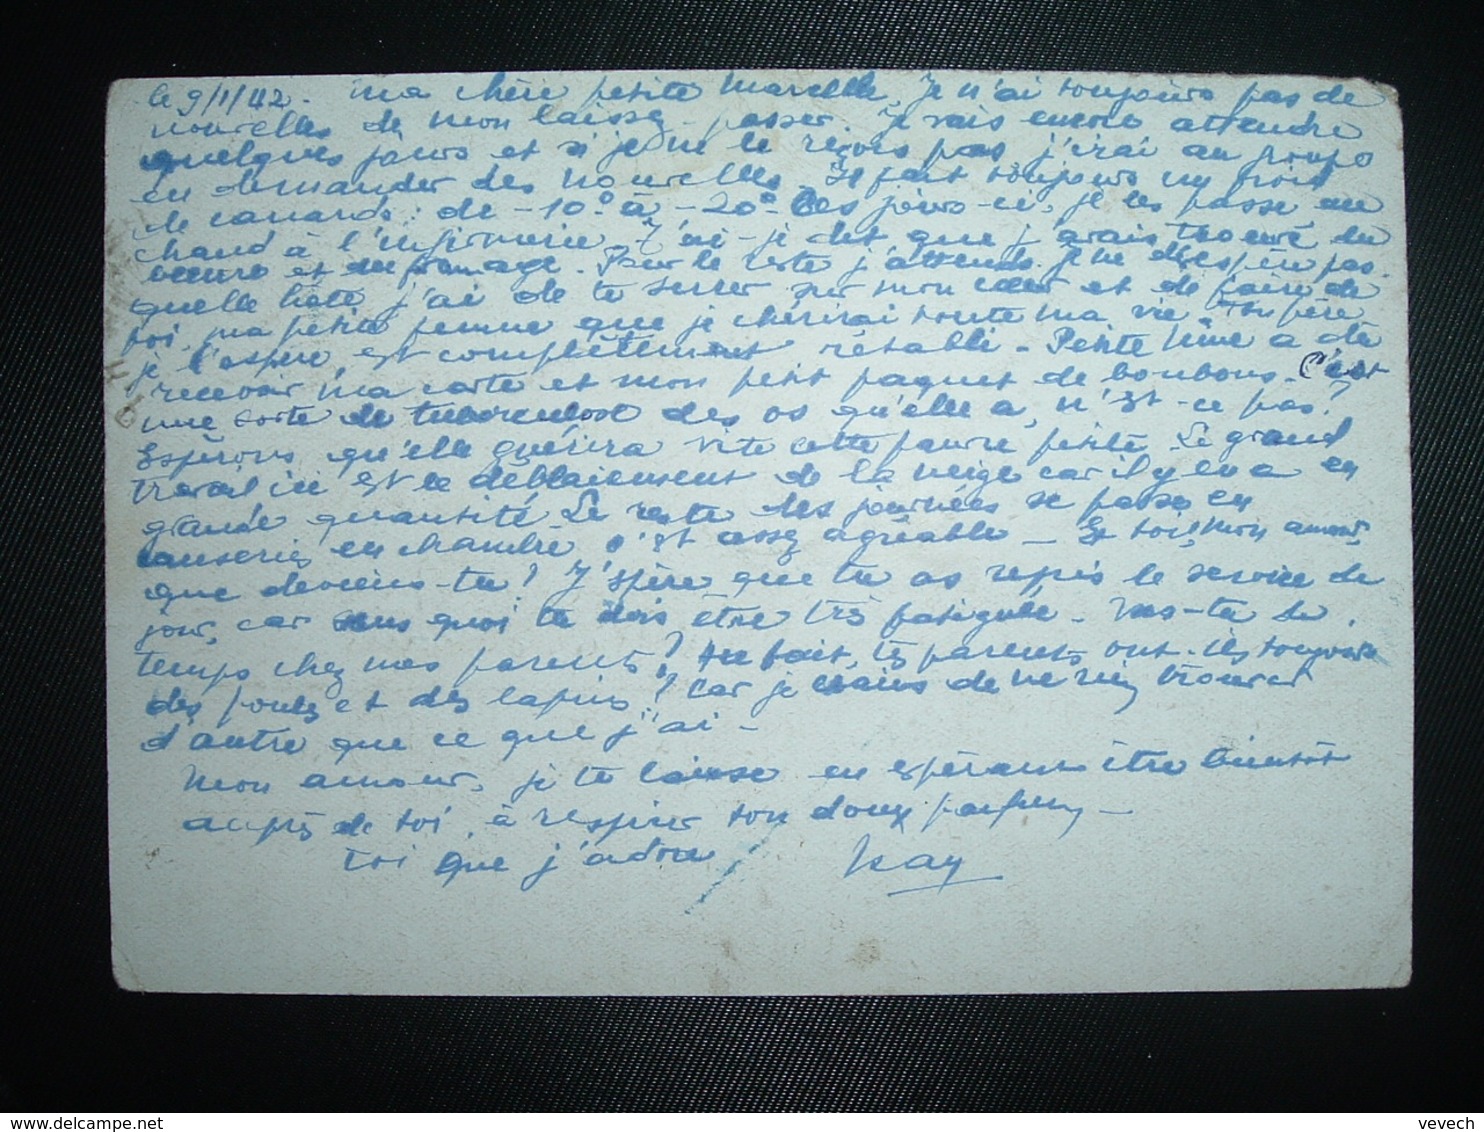 le 9/1/42. Ma chère petite Marcelle, Je n'ai toujours pas de
nouvelles de mon laissez-passer. Je vais encore attendre
quelques jours et si je ne le reçois pas j'irai au groupe
en demander des nouvelles. Il fait toujours un froid
de canards : de -10° à -20° Ces jours-ci, je les passe au
chaud à l'infirmerie. T'ai-je dit que j'avais trouvé du
beurre et du fromage. Pour le reste j'attends je ne désespère pas.
quelle hâte j'ai de te serrer sur mon cœur et de faire de
toi, ma petite femme que je chérirai toute ma vie. Ton père
je l'espère est complètement rétabli - Petite Mime a dû
recevoir ma carte et mon petit paquet de bonbons. C'est
une sorte de tuberculose des os qu'elle a, n'est-ce pas?
Espérons qu'elle guérira vite cette pauvre petite. Le grand
travail ici est le déblaiement de la neige car il y en a en
grande quantité. Le reste des journées se passe en
causeries en chambre, c'est assez agréable - Et toi, mon amour,
que deviens-tu? J'espère que tu as repris le service de
jour, car sans quoi tu dois être très fatiguée. Vas-tu de
temps chez mes parents? Au fait, tes parents ont-ils toujours
des poules et des lapins? Car je crains de ne rien trouver
d'autre que ce que j'ai -
Mon amour, je te laisse en espérant être bientôt
auprès de toi, à respirer ton doux parfum -
Toi que j'adore
vevech